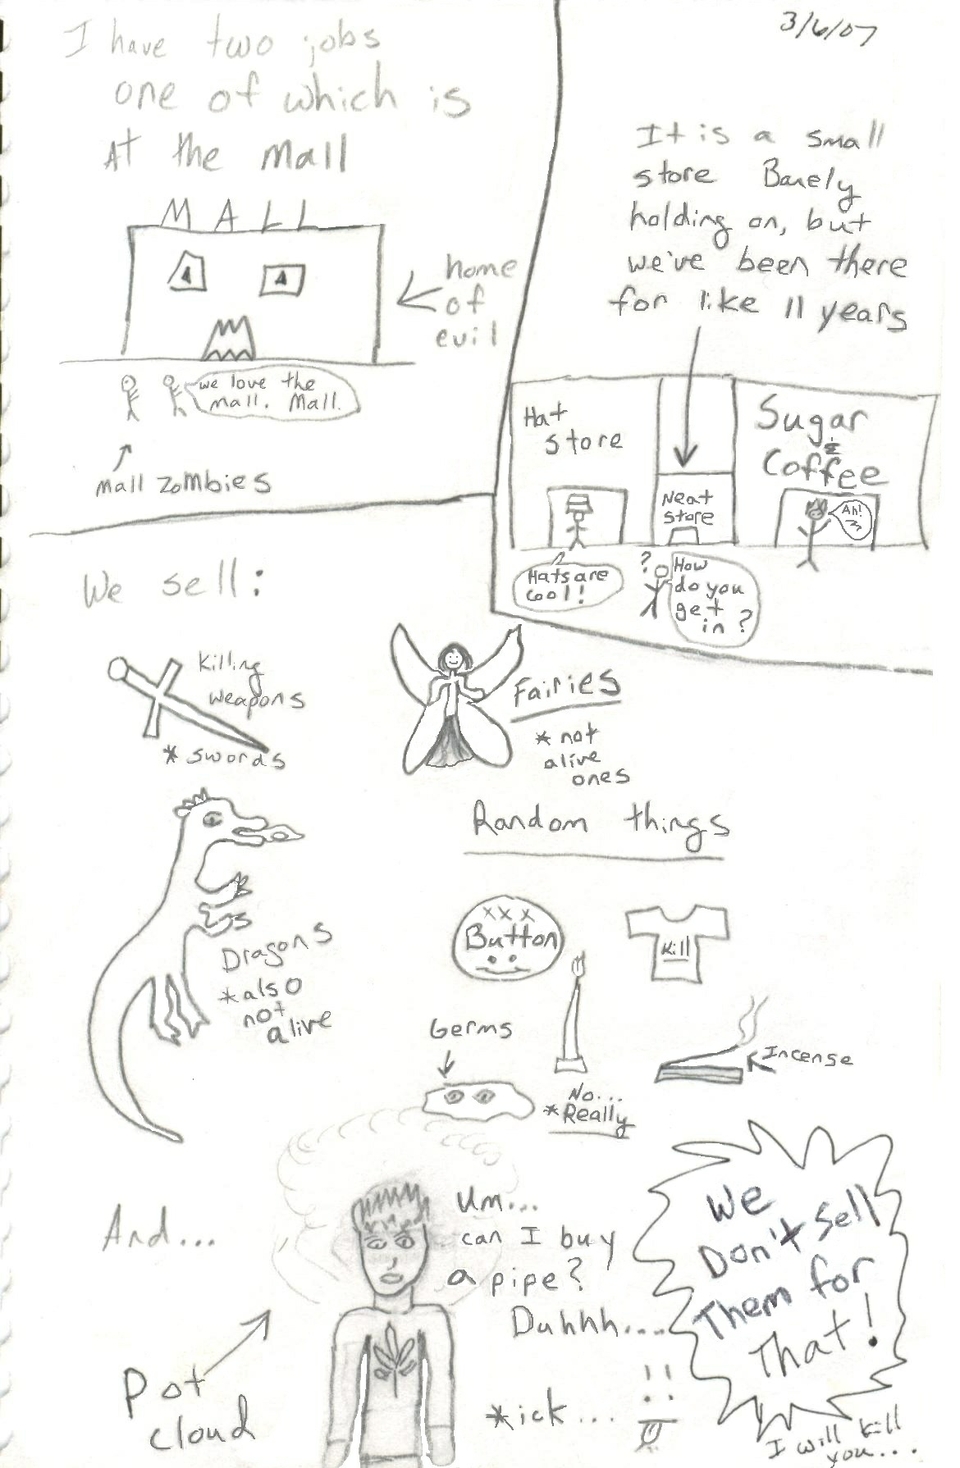 3/6/07
I have two jobs
one of which is
At the mall
MALL
home
of
evil
we love the
mall. Mall.
Mall Zombies
It is a small
store Barely
holding on, but
we've been there
for like 11 years
Hat
store
Neat
store
Sugar
&
Coffee
Ah!
Hats are
cool!
?
How
do you
get
in?
We sell:
Killing
weapons
* swords
Fairies
* not
alive
ones
Dragons
* also
not
alive
Random things
XXX
Button
Kill
Germs
No...
* Really
Incense
And...
Um...
can I buy
a pipe?
Duhhh....
We
Don't Sell
Them for
That!
Pot
cloud
*ick...
!!
I will kill
you...